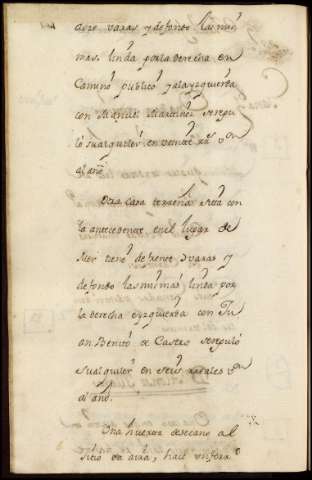 varas y de fondo las mis
mas, linda por la derecha en
Camino publico y a la yzquierda
con Manuel Martinez se regu
lo su alquiler en veinte r.s v.on
al año
Otra casa terreña sita con
la antecedente en el lugar de
tiene de frente varas y
de fondo las mismas linda por
la derecha e yzquierda con Ju
an Benito de Castro se reguló
su alquiler en seis reales v.on
al año
Una huerta de secano al
sitio de